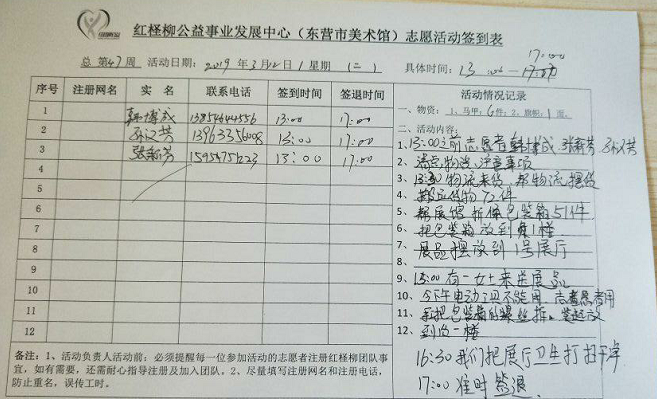 红柽柳公益事业发展中心（东营市美术馆）志愿活动签到表
总 第47周 活动日期：2019年3月12日 星期（二） 具体时间：13:00—17:00
17:00
序号 注册网名 实 名 联系电话 签到时间 签退时间 活动情况记录
1 韩博成 13854644556 13:00 17:00
2 孙汉芳 13963356008 13:00 17:00
3 张新芳 13:00 17:00
4
5
5
6
7
8
9
10
11
12
一、物资：1、马甲：6件；2、旗帜：1面。
二、活动内容：
1、13:00之前志愿者韩博成 张新芳 孙汉芳
2、清点物资，注意事项
3、13:30物流来货，帮物流摆货
4、搬运货物72件
5、帮展馆拆保包装箱51件
6、把包装箱放到负1楼
7、展品摆放到1号展厅
8、
9、15:00有一女士来送展品
10、今下午电动门不能用，志愿者用
11、再把包装箱的螺丝拆
12、到负一楼
16:30我们把展厅卫生打扫干净
17:00准时签退
备注：1、活动负责人活动前：必须提醒每一位参加活动的志愿者注册红柽柳团队事
宜，如有需要，还需耐心指导注册及加入团队。2、尽量填写注册网名和注册电话，
防止重名，误传工时。